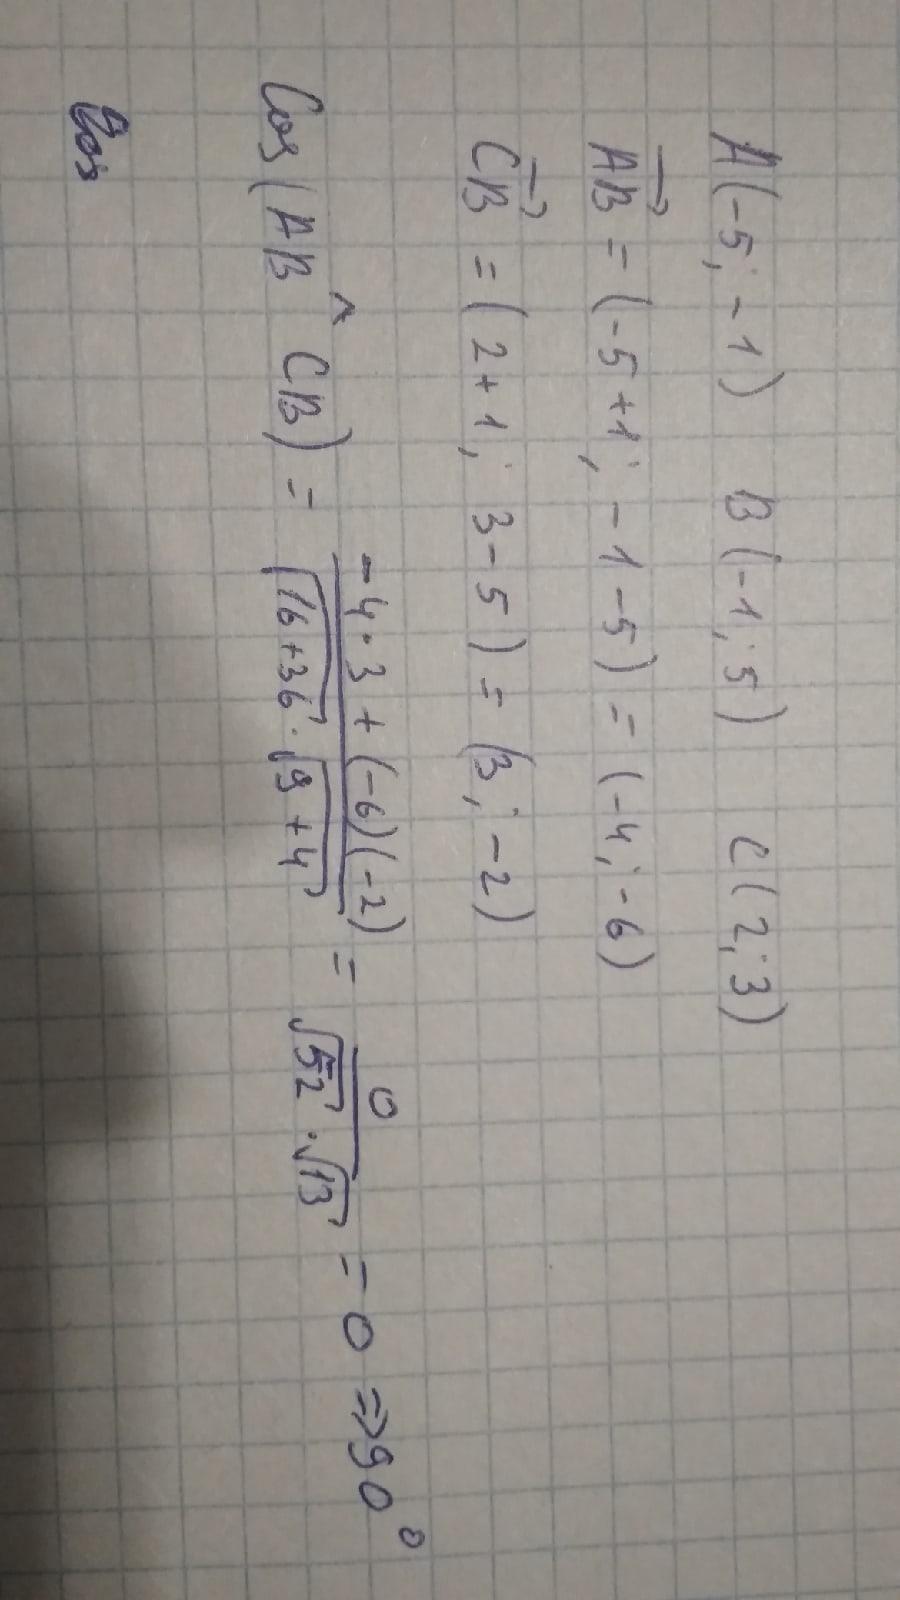 A(-5; -1) B(-1; 5) C(2; 3)
AB→ = (-5+1; -1-5) = (-4; -6)
CB→ = (2+1; 3-5) = (3; -2)
Cos(AB ^ CB) = (-4·3+(-6)(-2))/(√(16+36)·√(9+4)) = 0/(√52·√13) = 0 => 90°